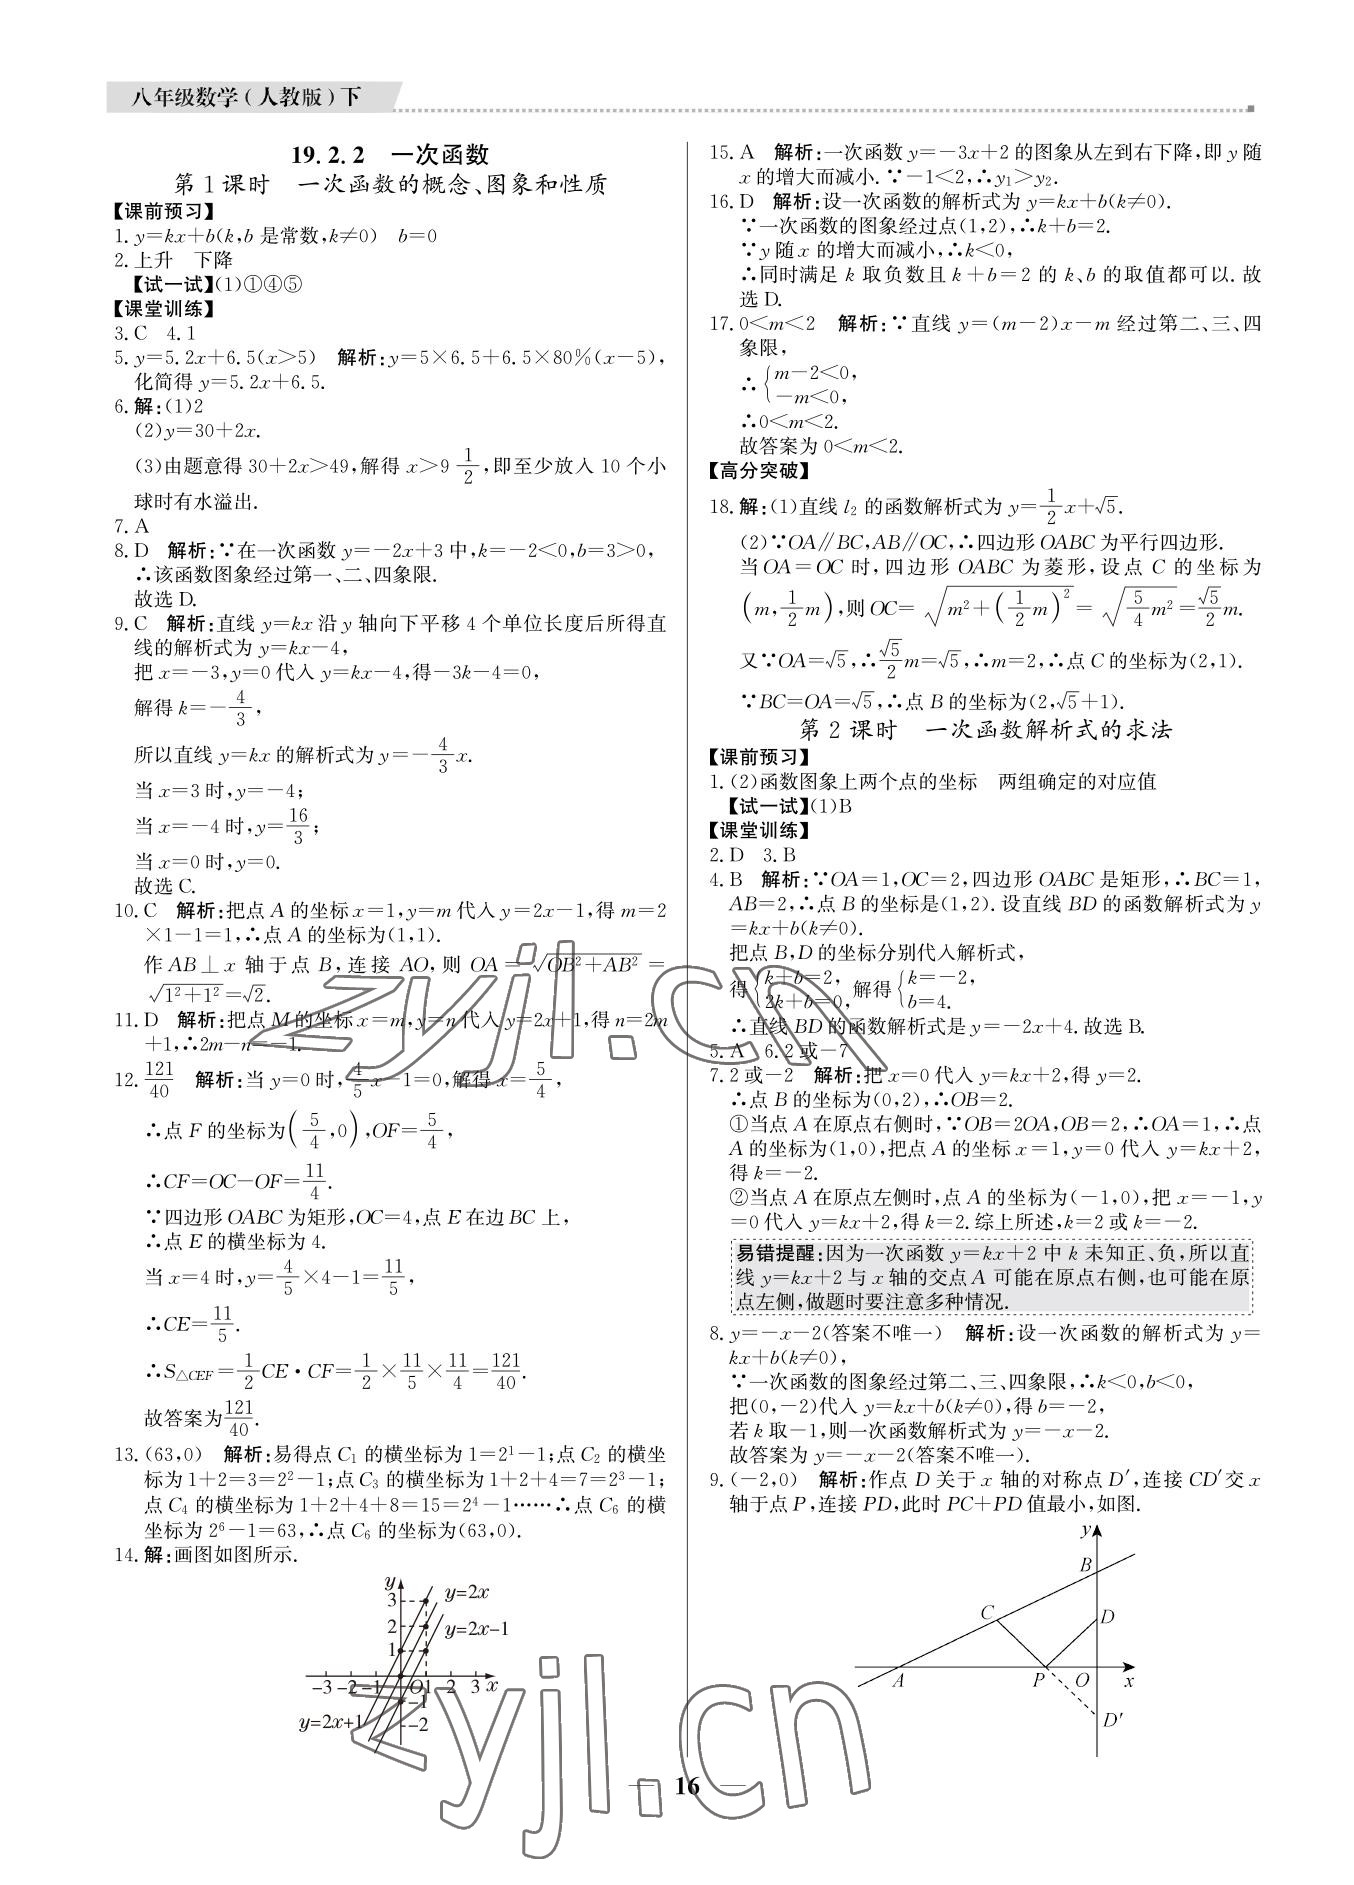 八年级数学(人教版)下
19.2.2　一次函数
第1课时　一次函数的概念、图象和性质
【课前预习】
1. y=kx+b(k,b 是常数,k≠0)　b=0
2. 上升　下降
【试一试】(1)①④⑤
【课堂训练】
3. C　4. 1
5. y=5.2x+6.5(x>5)　解析:y=5×6.5+6.5×80%(x−5),
化简得 y=5.2x+6.5.
6. 解:(1)2
(2)y=30+2x.
(3)由题意得 30+2x>49,解得 x>9 1/2,即至少放入 10 个小
球时有水溢出.
7. A
8. D　解析:∵在一次函数 y=−2x+3 中,k=−2<0,b=3>0,
∴该函数图象经过第一、二、四象限.
故选 D.
9. C　解析:直线 y=kx 沿 y 轴向下平移 4 个单位长度后所得直
线的解析式为 y=kx−4,
把 x=−3,y=0 代入 y=kx−4,得−3k−4=0,
解得 k=−4/3,
所以直线 y=kx 的解析式为 y=−4/3x.
当 x=3 时,y=−4;
当 x=−4 时,y=16/3;
当 x=0 时,y=0.
故选 C.
10. C　解析:把点 A 的坐标 x=1,y=m 代入 y=2x−1,得 m=2
×1−1=1,∴点 A 的坐标为(1,1).
作 AB⊥x 轴于点 B,连接 AO,则 OA=√(OB²+AB²)=
√(1²+1²)=√2.
11. D　解析:把点 M 的坐标 x=m,y=n 代入 y=2x+1,得 n=2m
+1,∴2m−n=−1.
12. 121/40　解析:当 y=0 时,4/5x−1=0,解得 x=5/4,
∴点 F 的坐标为(5/4,0),OF=5/4,
∴CF=OC−OF=11/4.
∵四边形 OABC 为矩形,OC=4,点 E 在边 BC 上,
∴点 E 的横坐标为 4.
当 x=4 时,y=4/5×4−1=11/5,
∴CE=11/5.
∴S△CEF=1/2CE·CF=1/2×11/5×11/4=121/40.
故答案为121/40.
13. (63,0)　解析:易得点 C₁ 的横坐标为 1=2¹−1;点 C₂ 的横坐
标为 1+2=3=2²−1;点 C₃ 的横坐标为 1+2+4=7=2³−1;
点 C₄ 的横坐标为 1+2+4+8=15=2⁴−1……∴点 C₆ 的横
坐标为 2⁶−1=63,∴点 C₆ 的坐标为(63,0).
14. 解:画图如图所示.
y
3
y=2x
2
y=2x−1
1
−3 −2 −1 O 1 2 3 x
−1
y=2x+1
−2
15. A　解析:一次函数 y=−3x+2 的图象从左到右下降,即 y 随
x 的增大而减小.∵−1<2,∴y₁>y₂.
16. D　解析:设一次函数的解析式为 y=kx+b(k≠0).
∵一次函数的图象经过点(1,2),∴k+b=2.
∵y 随 x 的增大而减小,∴k<0,
∴同时满足 k 取负数且 k+b=2 的 k、b 的取值都可以.故
选 D.
17. 0<m<2　解析:∵直线 y=(m−2)x−m 经过第二、三、四
象限,
∴{m−2<0,
−m<0,
∴0<m<2.
故答案为 0<m<2.
【高分突破】
18. 解:(1)直线 l₂ 的函数解析式为 y=1/2x+√5.
(2)∵OA∥BC,AB∥OC,∴四边形 OABC 为平行四边形.
当 OA=OC 时,四边形 OABC 为菱形,设点 C 的坐标为
(m,1/2m),则 OC=√(m²+(1/2m)²)=√(5/4m²)=√5/2m.
又∵OA=√5,∴√5/2m=√5,∴m=2,∴点 C 的坐标为(2,1).
∵BC=OA=√5,∴点 B 的坐标为(2,√5+1).
第2课时　一次函数解析式的求法
【课前预习】
1. (2)函数图象上两个点的坐标　两组确定的对应值
【试一试】(1)B
【课堂训练】
2. D　3. B
4. B　解析:∵OA=1,OC=2,四边形 OABC 是矩形,∴BC=1,
AB=2,∴点 B 的坐标是(1,2).设直线 BD 的函数解析式为 y
=kx+b(k≠0).
把点 B,D 的坐标分别代入解析式,
得{k+b=2, 2k+b=0,解得{k=−2, b=4.
∴直线 BD 的函数解析式是 y=−2x+4.故选 B.
5. A　6. 2 或−7
7. 2 或−2　解析:把 x=0 代入 y=kx+2,得 y=2.
∴点 B 的坐标为(0,2),∴OB=2.
①当点 A 在原点右侧时,∵OB=2OA,OB=2,∴OA=1,∴点
A 的坐标为(1,0),把点 A 的坐标 x=1,y=0 代入 y=kx+2,
得 k=−2.
②当点 A 在原点左侧时,点 A 的坐标为(−1,0),把 x=−1,y
=0 代入 y=kx+2,得 k=2.综上所述,k=2 或 k=−2.
易错提醒:因为一次函数 y=kx+2 中 k 未知正、负,所以直
线 y=kx+2 与 x 轴的交点 A 可能在原点右侧,也可能在原
点左侧,做题时要注意多种情况.
8. y=−x−2(答案不唯一)　解析:设一次函数的解析式为 y=
kx+b(k≠0),
∵一次函数的图象经过第二、三、四象限,∴k<0,b<0,
把(0,−2)代入 y=kx+b(k≠0),得 b=−2,
若 k 取−1,则一次函数解析式为 y=−x−2.
故答案为 y=−x−2(答案不唯一).
9. (−2,0)　解析:作点 D 关于 x 轴的对称点 D′,连接 CD′交 x
轴于点 P,连接 PD,此时 PC+PD 值最小,如图.
y
B
C
D
A P O x
D′
— 16 —
zyjl.cn
zyjl.cn